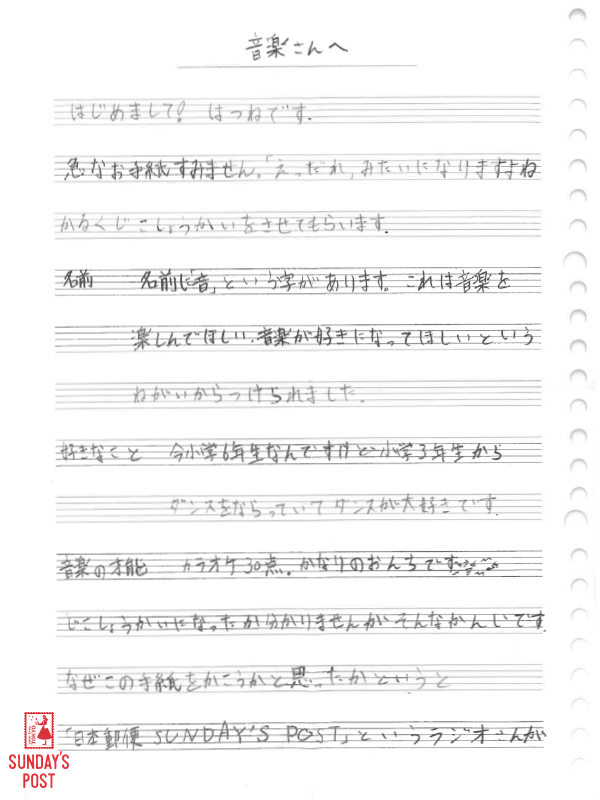 音楽さんへ
はじめまして! はつねです.
急なお手紙すみません。「えっだれ」みたいになりますよね
かるくじこしょうかいをさせてもらいます.
名前 名前に「音」という字があります。これは音楽を
楽しんでほしい.音楽が好きになってほしいという
ねがいからつけられました.
好きなこと 今小学6年生なんですけど小学3年生から
ダンスをならっていてダンスが大好きです.
音楽の才能 カラオケ30点.かなりのおんちです
じこしょうかいになったか分かりませんがそんなかんじです.
なぜこの手紙をかこうかと思ったかというと
「日本郵便 SUNDAY'S POST」というラジオさんが
TOKYO
SUNDAY'S
POST